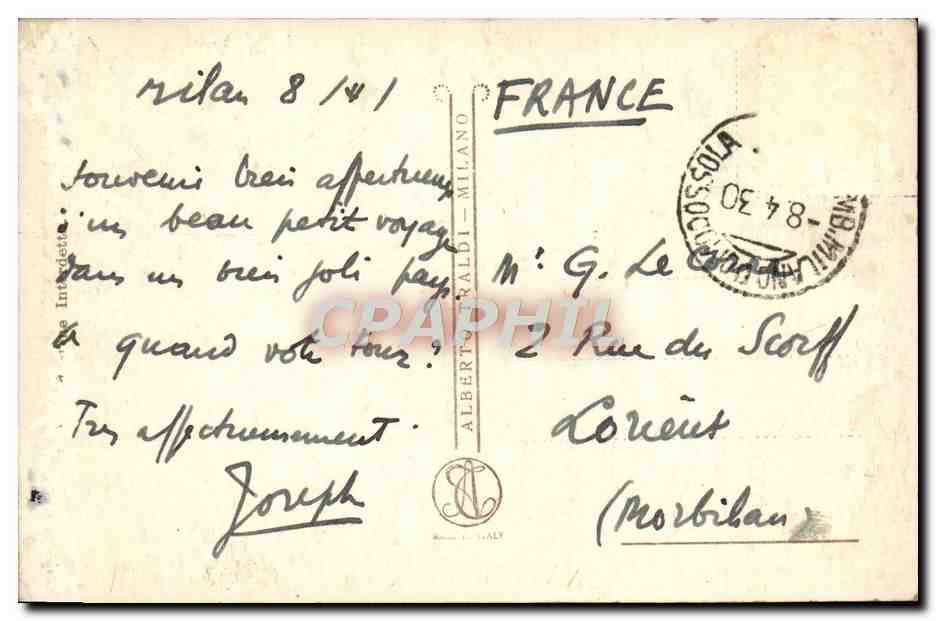 Milan 8/4/
Souvenir bien affectueux
d'un beau petit voyage
dans un bien joli pays.
A quand votre tour?
Très affectueusement
Joseph
Interdetta.
ALBERTO TRALDI - MILANO
ITALY
FRANCE
Mr G. Le
2 Rue du Scorff
Lorient
(Morbihan)
AMB. MILANO DOMODOSSOLA
-8.4.30
CPAPHIL